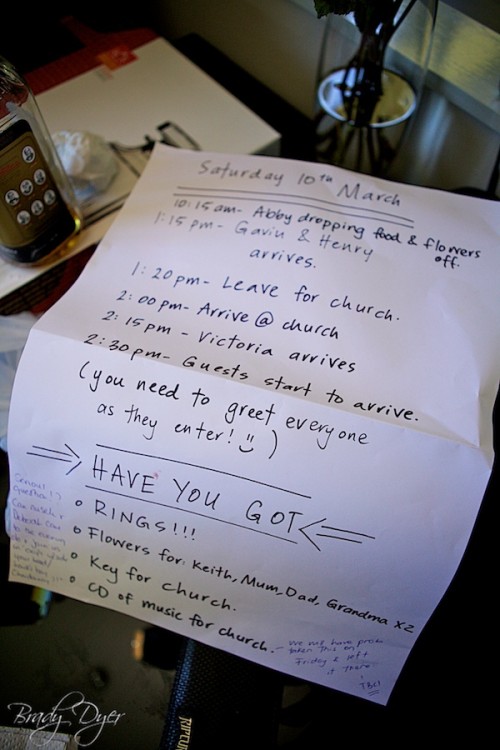 Saturday 10th March
10:15am- Abby dropping food & flowers
off.
1:15pm- Gavin & Henry
arrives.
1:20pm- Leave for church.
2:00pm- Arrive @ church
2:15pm - Victoria arrives
2:30pm- Guests start to arrive.
(you need to greet everyone
as they enter! )
HAVE YOU GOT
RINGS!!!
Flowers for: Keith, Mum, Dad, Grandma x2
Key for church.
CD of music for church. -
taken this on
Friday & left
it there
TBC!
RIPCURL
Brady Dyer